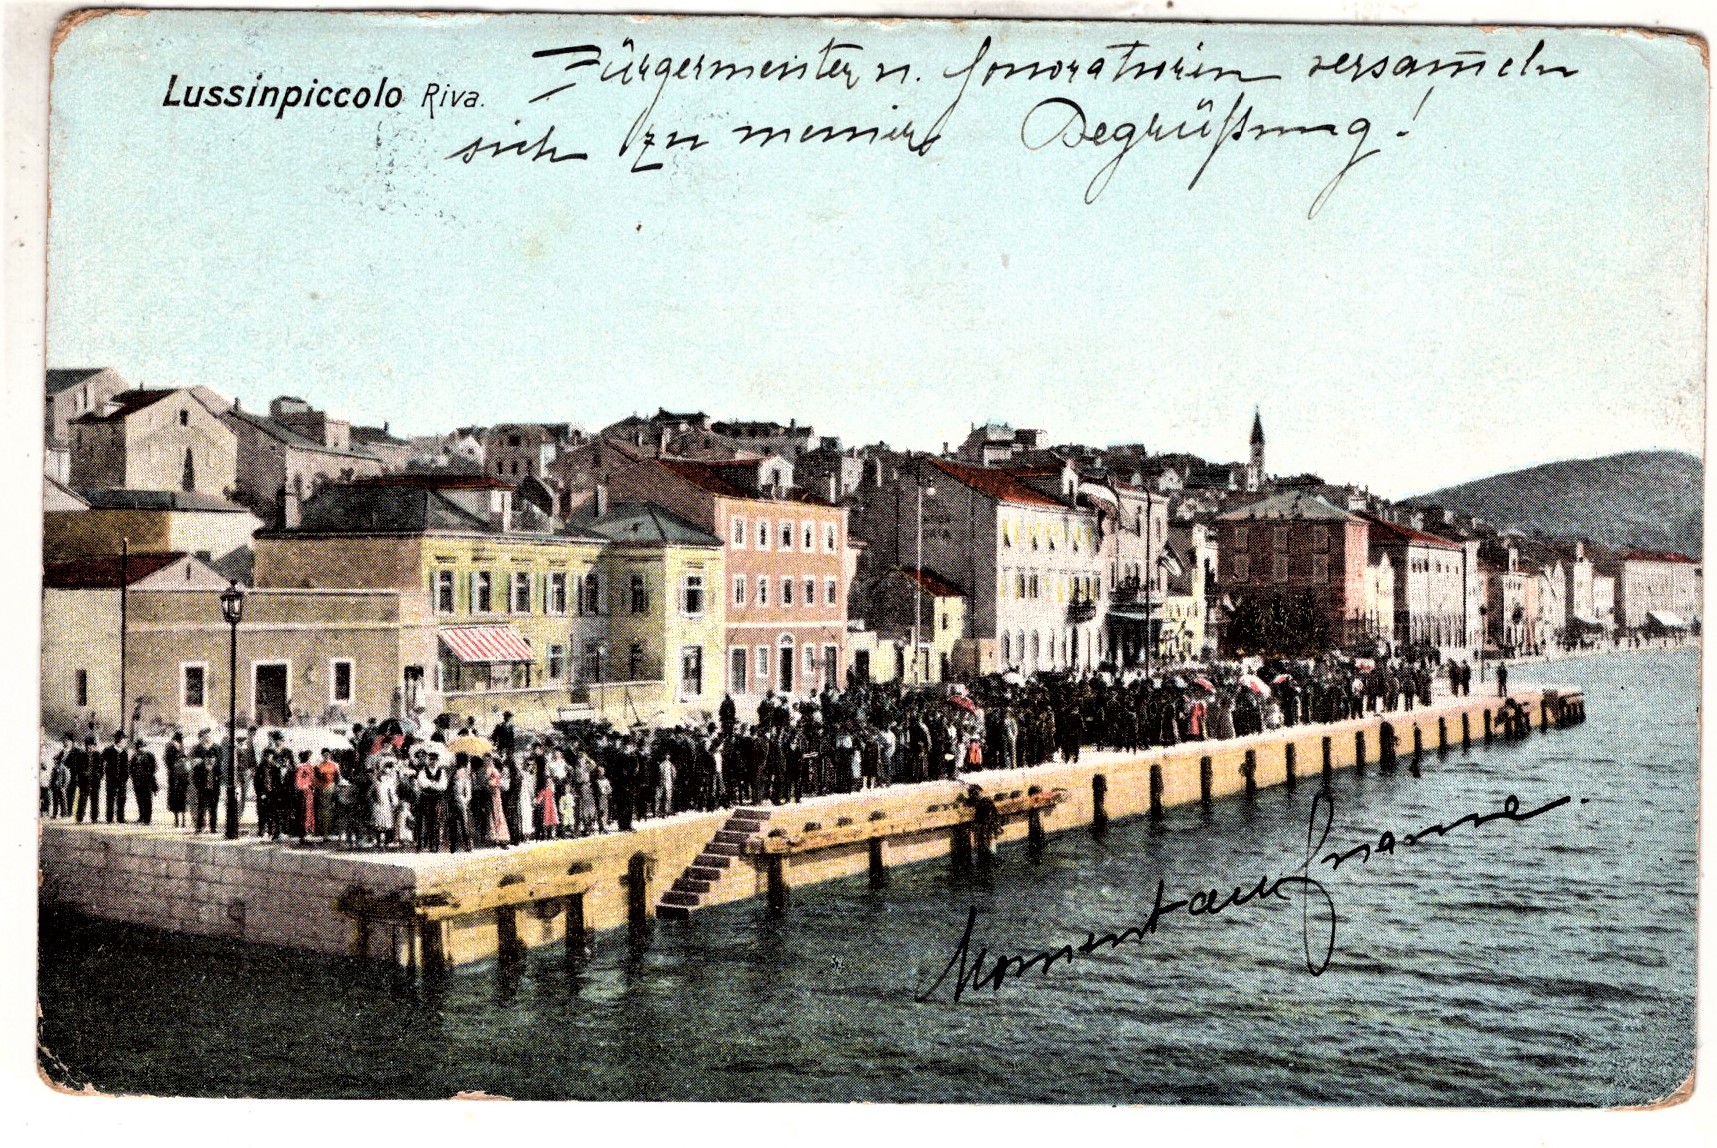 Lussinpiccolo Riva.
Bürgermeister u. Honoratioren versam̄eln
sich zu meiner Begrüßung!
Momentaufname.